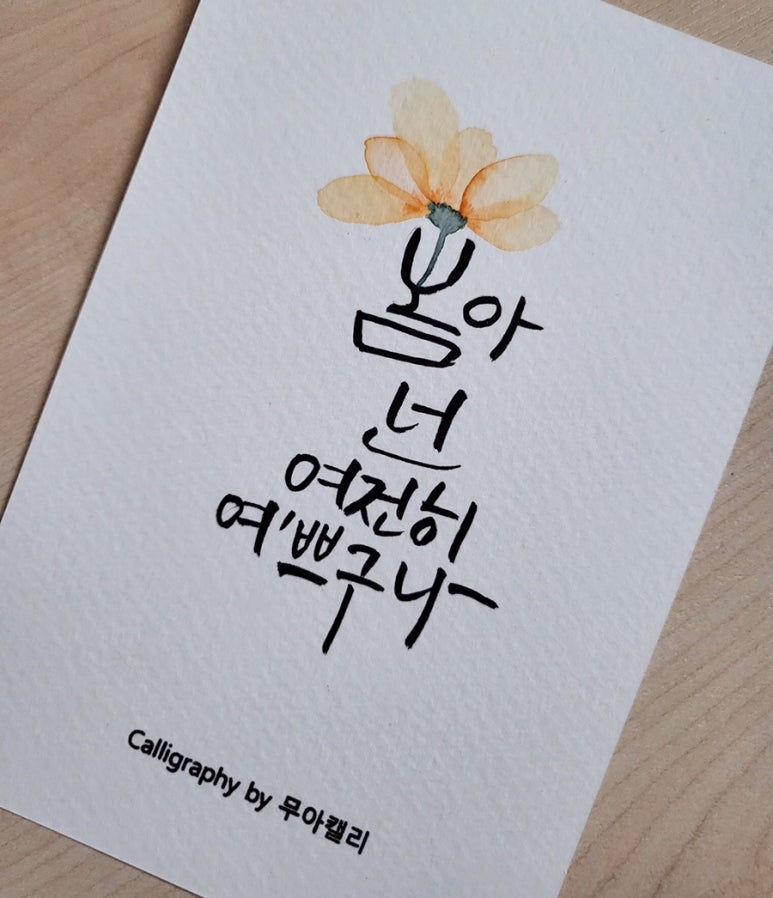 봄아
넌
여전히
예쁘구나
Calligraphy by 무아캘리